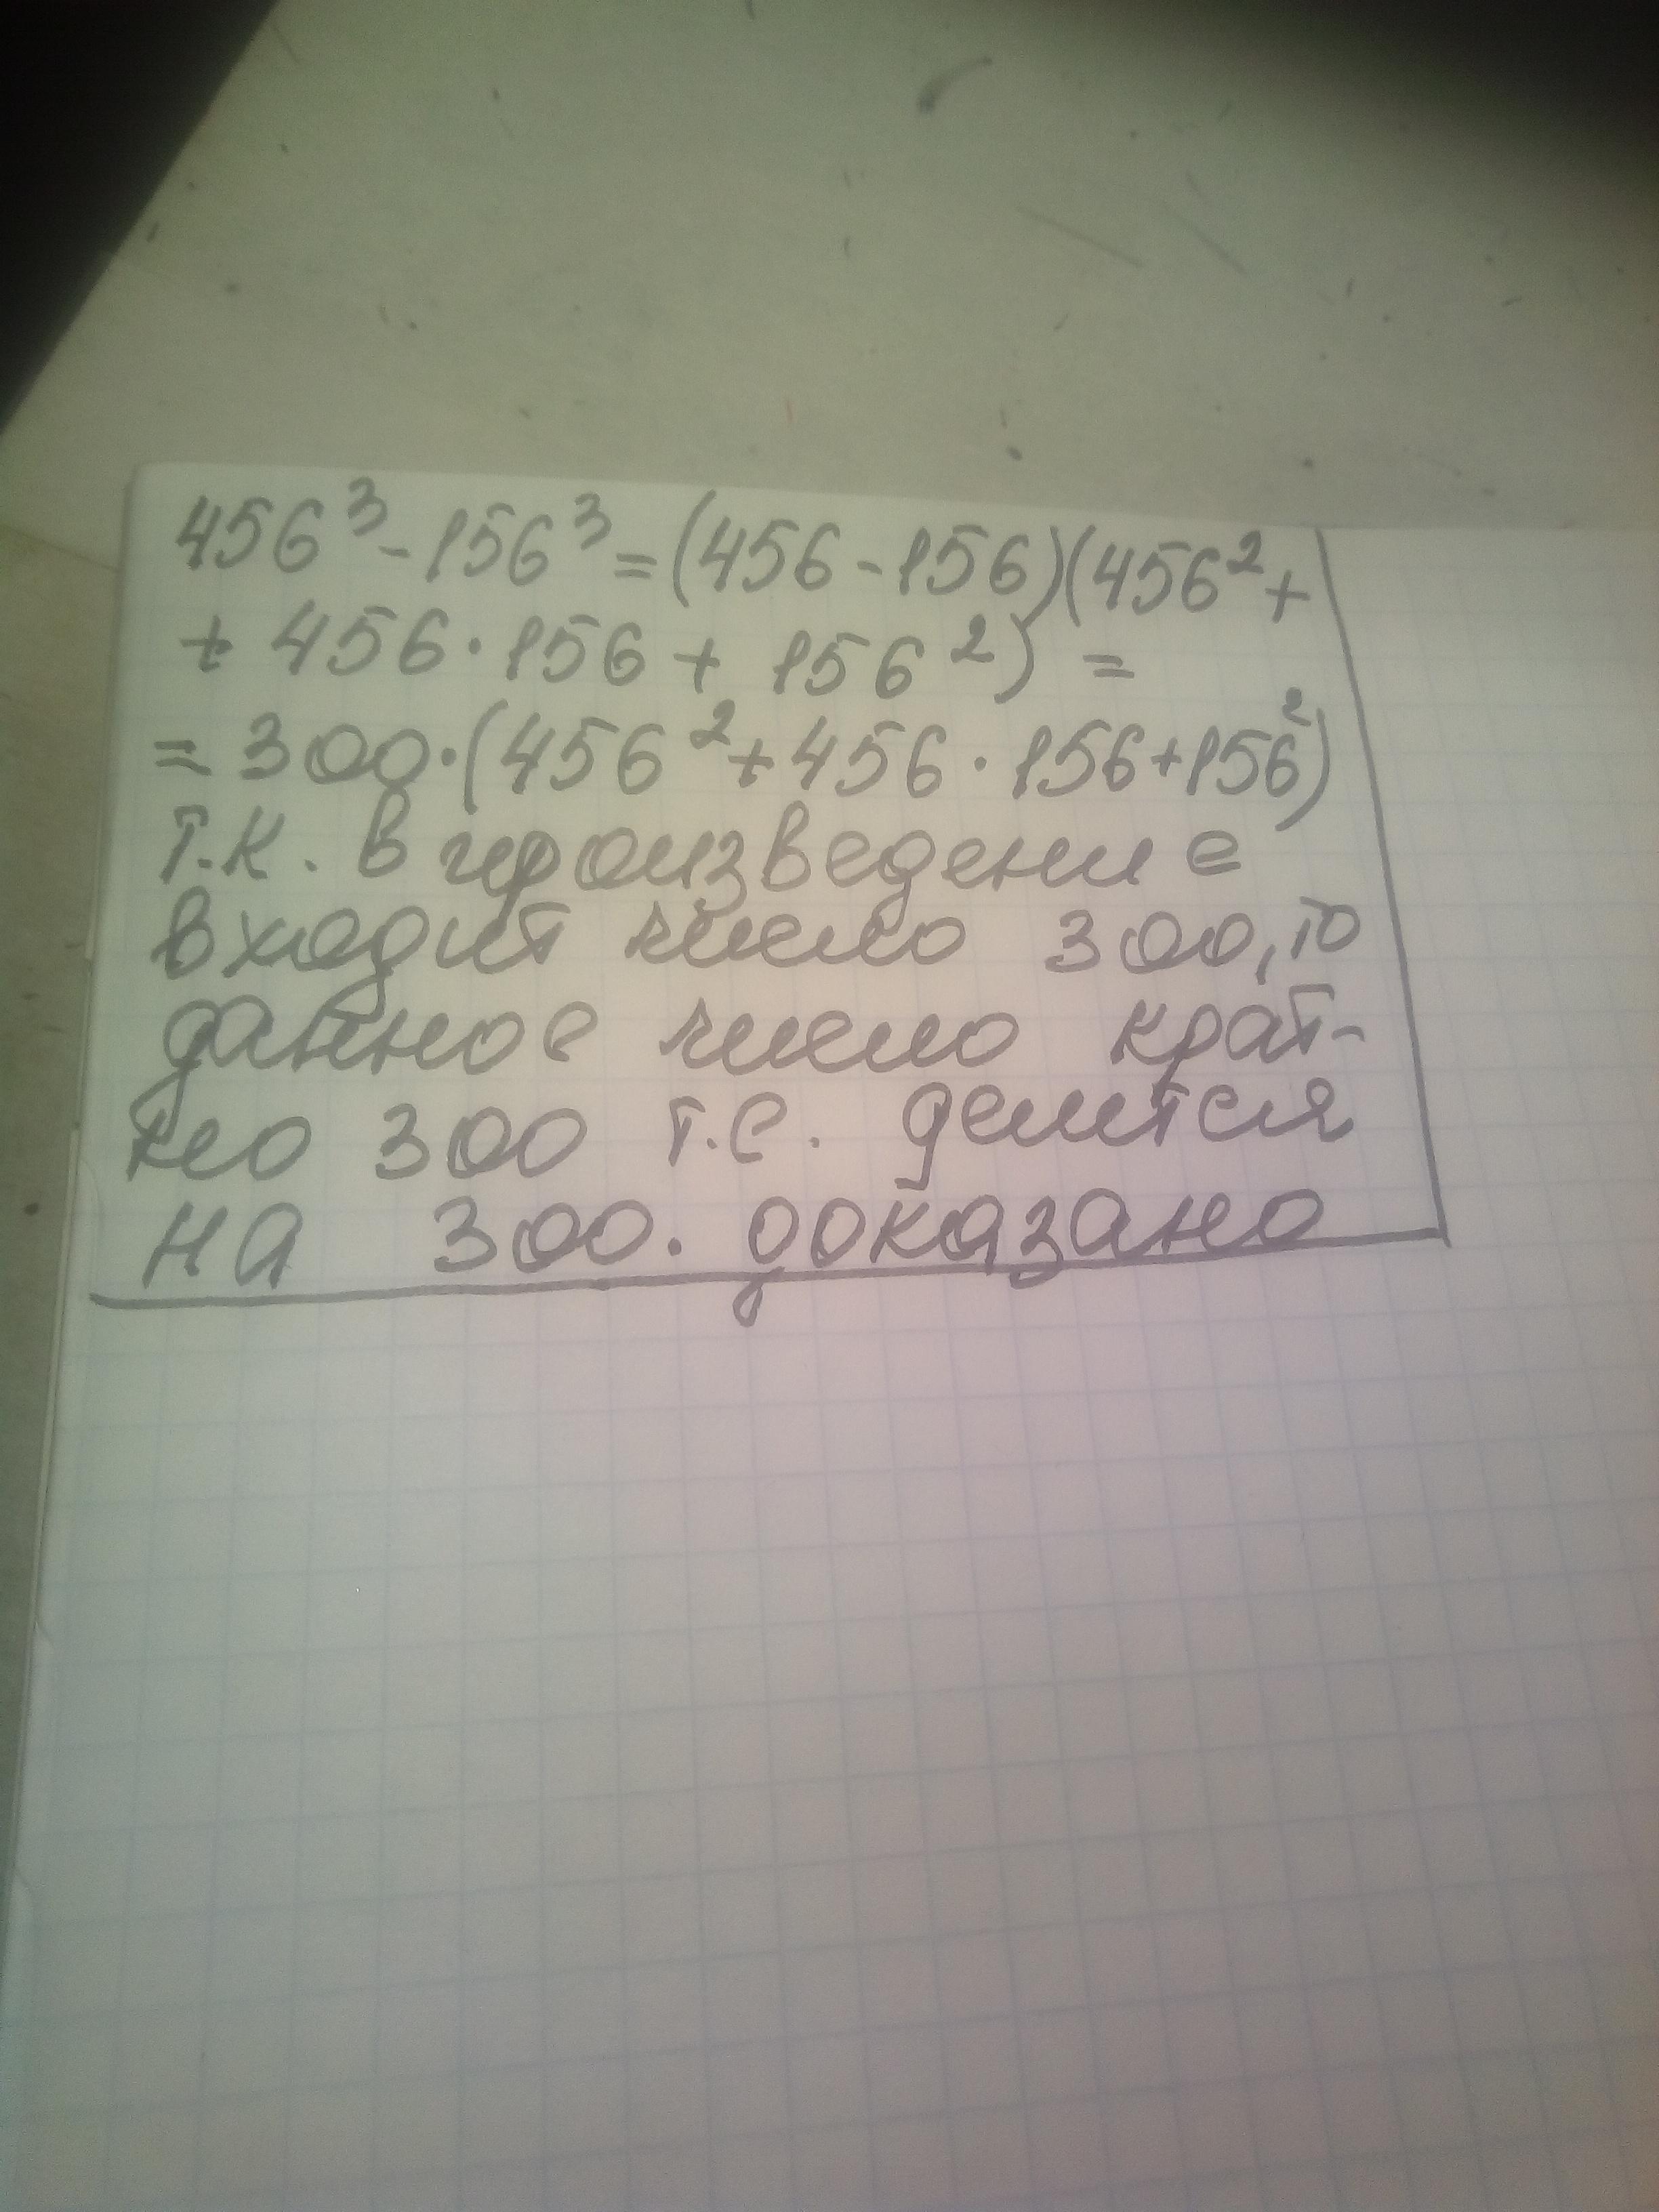 456³-156³=(456-156)(456²+
+ 456·156 + 156²) =
= 300·(456²+456·156+156²)
т.к. в произведение
входит число 300, то
данное число крат-
но 300 т.е. делится
на 300. доказано